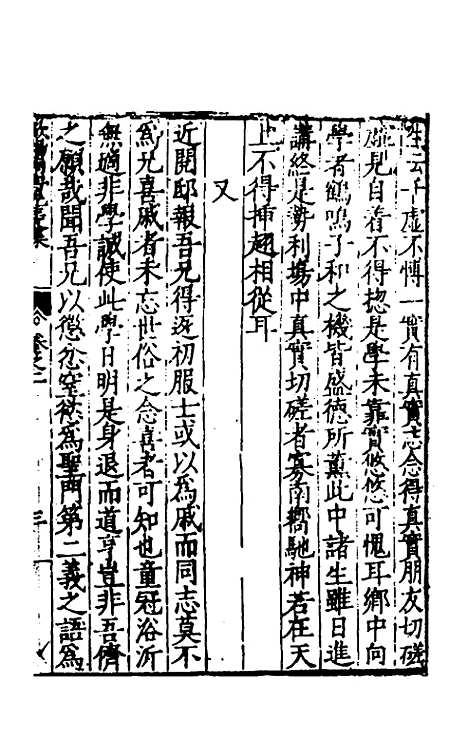 生云千虛不博一實有真實志念得真實朋友切磋
虛見自着不得揔是學未靠實悠悠可愧耳鄉中向
學者鶴鳴子和之機皆盛德所薰此中諸生雖日進
講終是勢利塲中真實切磋者寡南嚮馳神若在天
上不得挿翅相從耳
又
近閱邸報吾兄得遂初服士或以爲戚而同志莫不
爲兄喜戚者未忘世俗之念喜者可知也童冠浴沂
無適非學誠使此學日明是身退而道亨豈非吾儕
之願哉聞吾兄以懲忿窒慾爲聖門第二義之語爲
卷之二